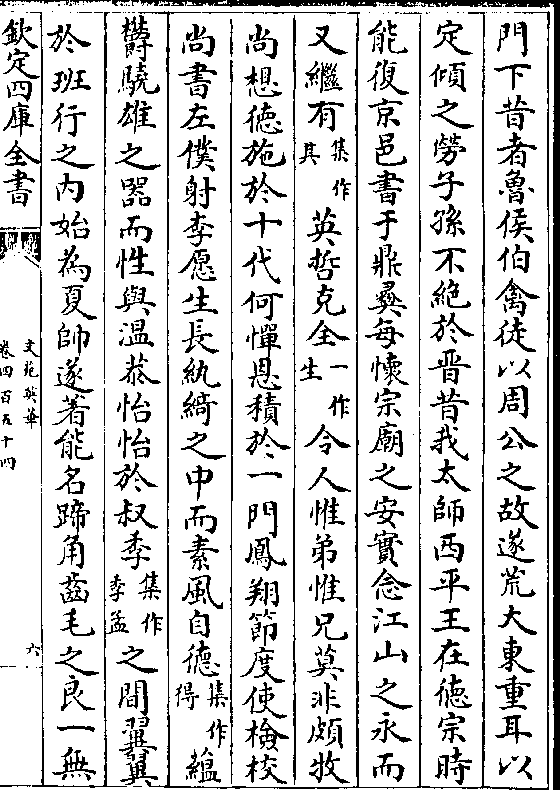 門下昔者魯侯伯禽徒以周公之故遂荒大東重耳以
定傾之勞子孫不絶於晋昔我太師西平王在德宗時
能復京邑書于鼎彛每懷宗廟之安實念江山之永而
又繼有集作其英哲克全一作生令人惟弟惟兄莫非頗牧
尚想德施於十代何憚恩積於一門鳳翔節度使檢校
尚書左僕射李愿生長紈綺之中而素風自德集作得藴
欝驍雄之器而性與温恭怡怡於叔季集作季孟之間翼翼
於班行之内始為夏帥遂著能名蹄角齒毛之良一無
欽定四庫全書
文苑英華
卷四百五十四
六